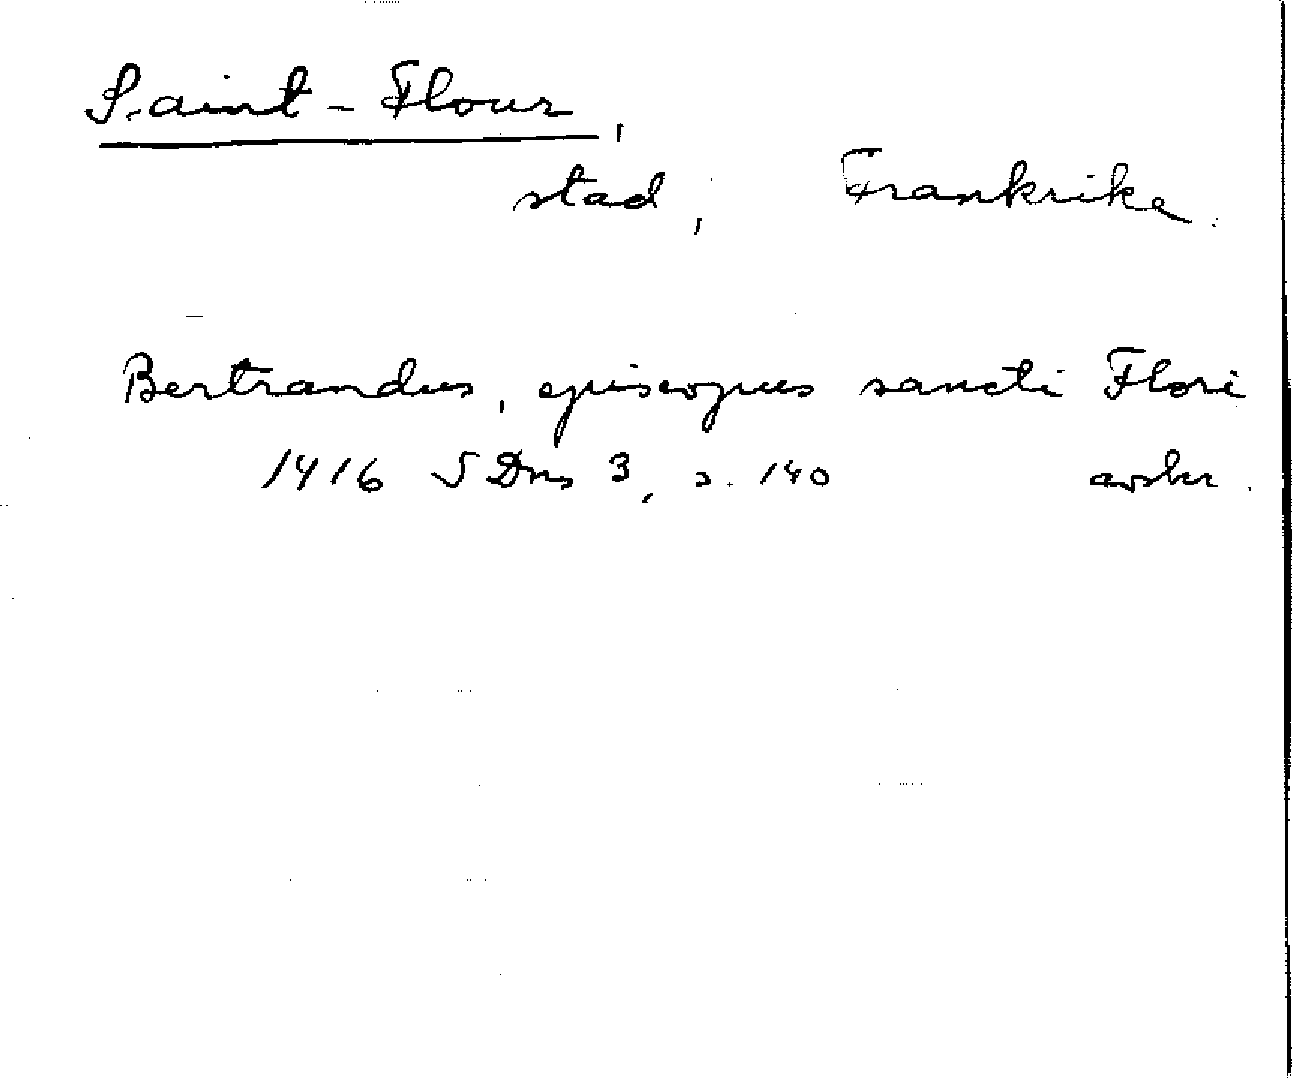 Saint-Flour,
stad, Frankrike.
Bertrandus, episcopus sancti Flori
1416 SDns 3, s. 140 avskr.